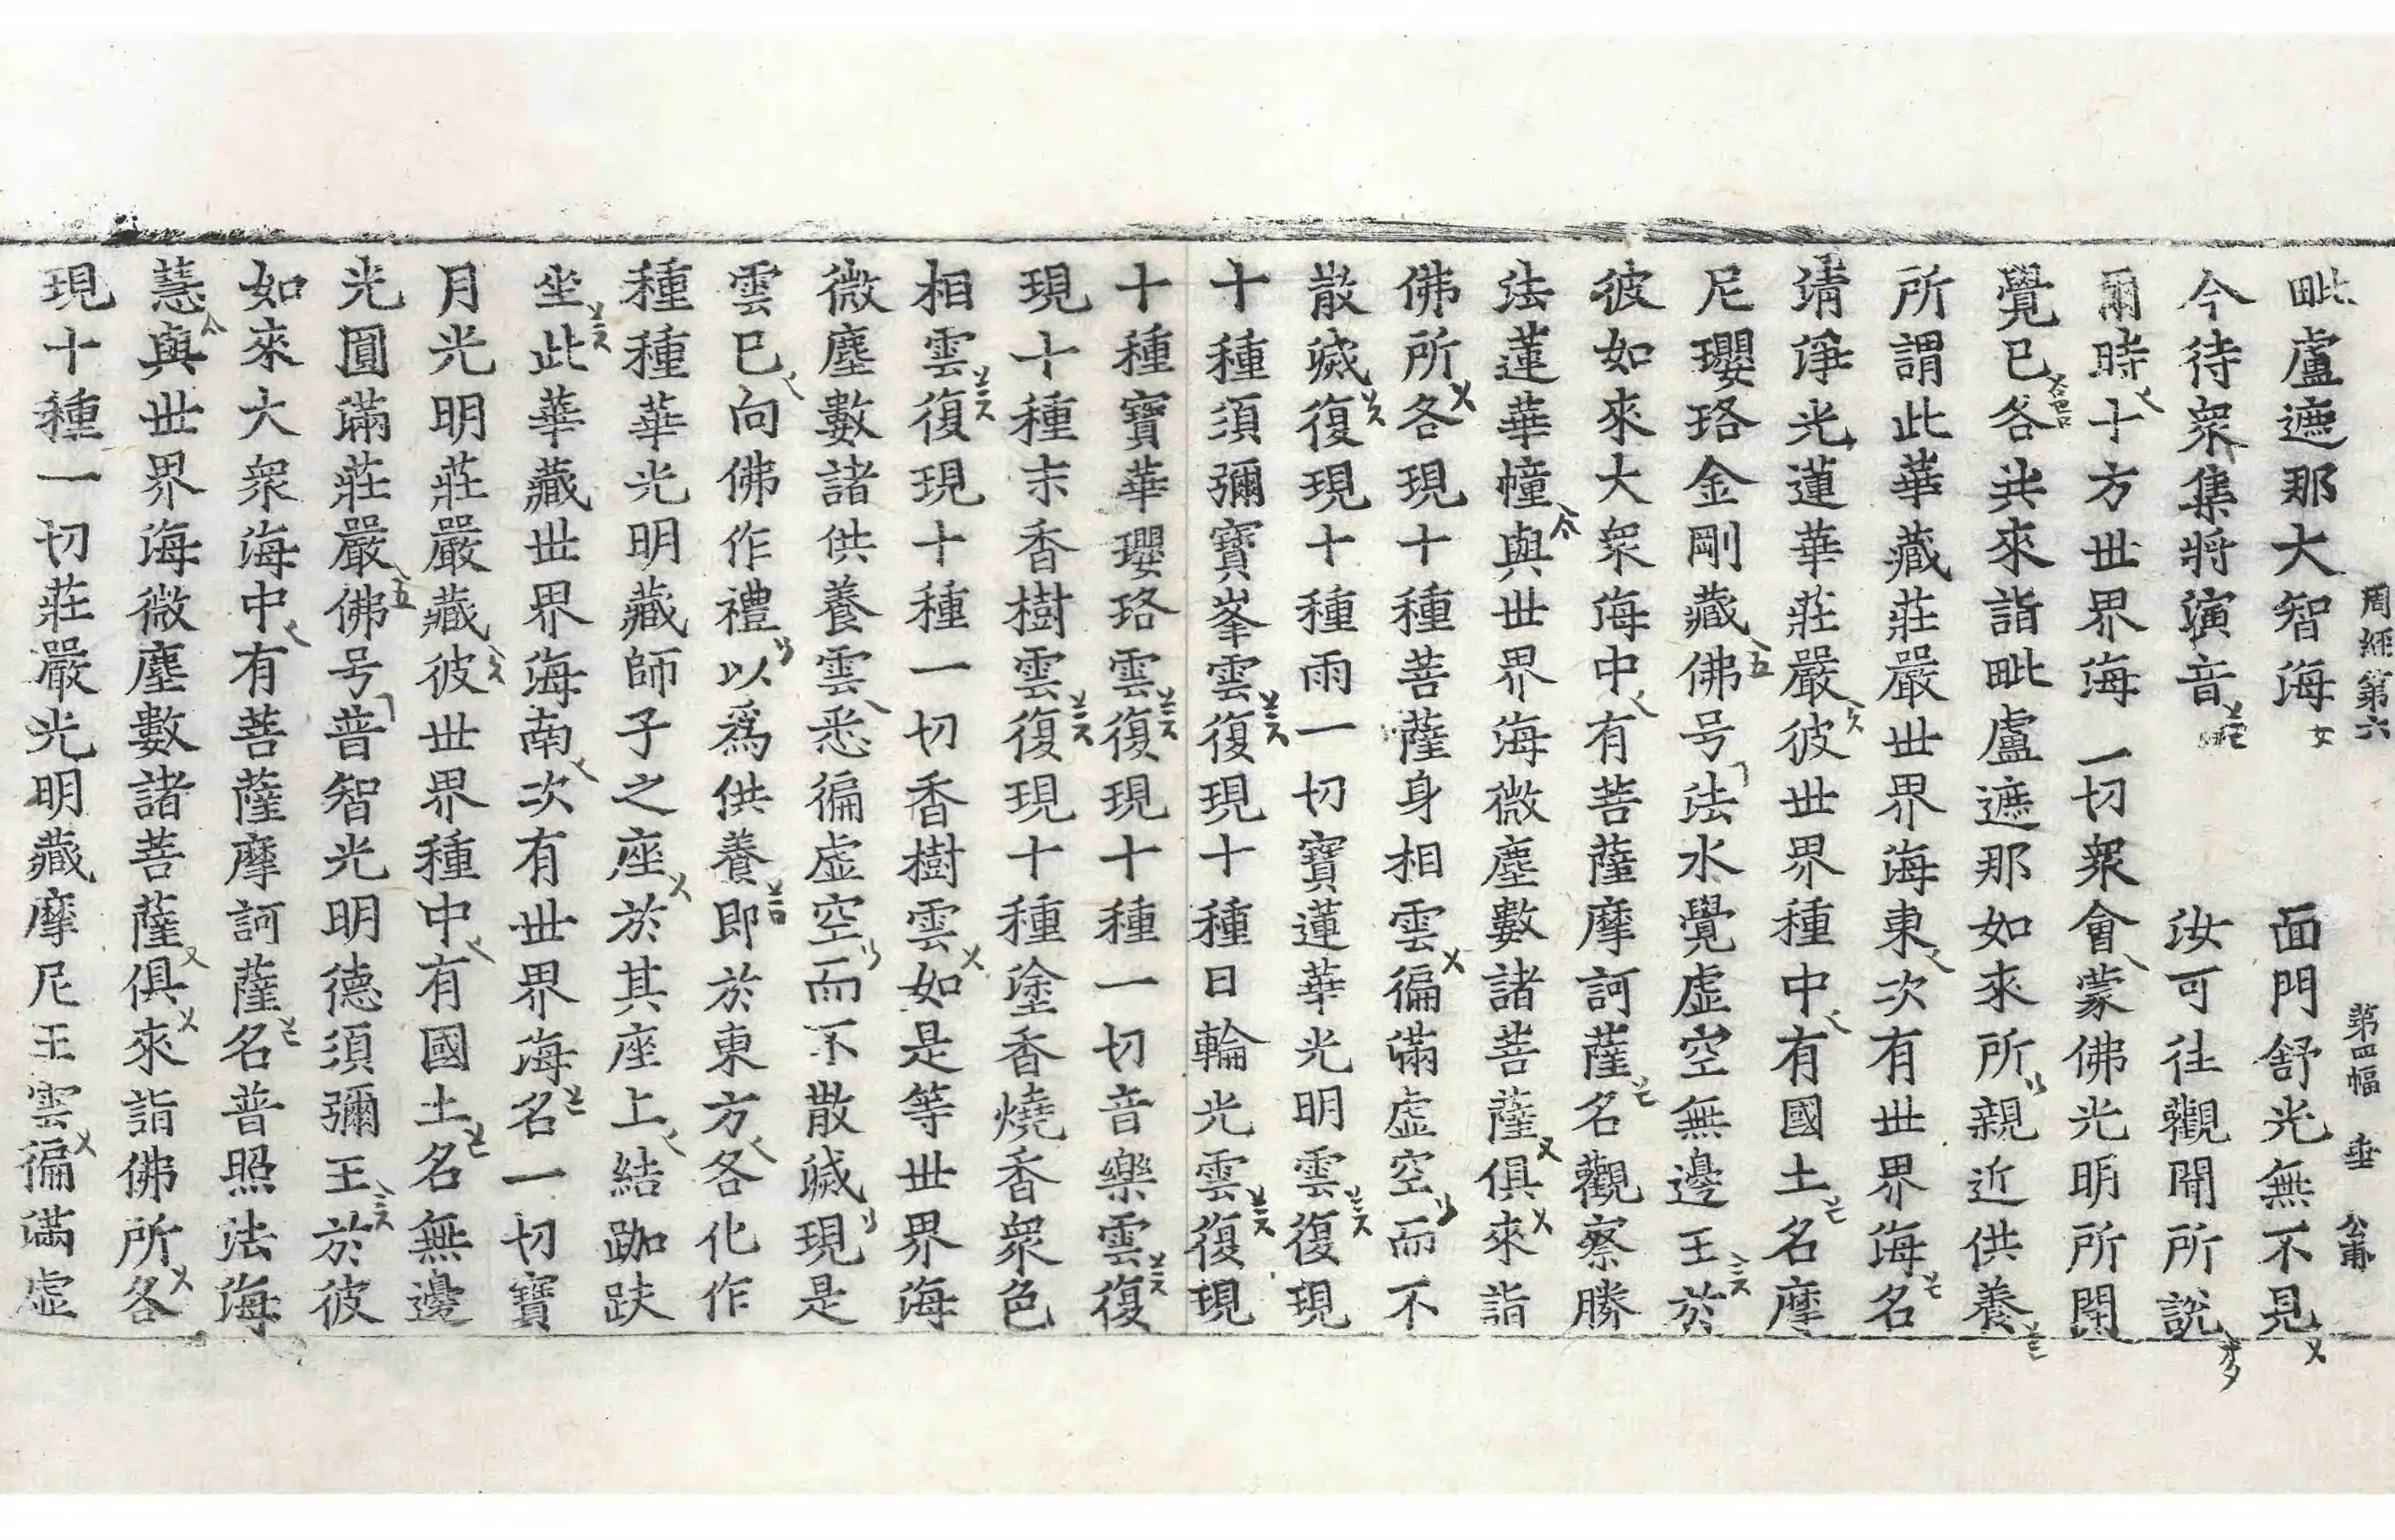 周經第六　第四幅　垂　公甫
毗盧遮那大智海　面門舒光無不見
今待衆集將演音　汝可往觀聞所說
爾時十方世界海一切衆會蒙佛光明所開
覺已各共來詣毗盧遮那如來所親近供養
所謂此華藏莊嚴世界海東次有世界海名
清淨光蓮華莊嚴彼世界種中有國土名摩
尼瓔珞金剛藏佛号法水覺虛空無邊王於
彼如來大衆海中有菩薩摩訶薩名觀察勝
法蓮華幢與世界海微塵數諸菩薩俱來詣
佛所各現十種菩薩身相雲徧滿虛空而不
散滅復現十種雨一切寶蓮華光明雲復現
十種須彌寶峯雲復現十種日輪光雲復現
十種寶華瓔珞雲復現十種一切音樂雲復
現十種末香樹雲復現十種塗香燒香衆色
相雲復現十種一切香樹雲如是等世界海
微塵數諸供養雲悉徧虛空而不散滅現是
雲已向佛作禮以爲供養即於東方各化作
種種華光明藏師子之座於其座上結跏趺
坐此華藏世界海南次有世界海名一切寶
月光明莊嚴藏彼世界種中有國土名無邊
光圓滿莊嚴佛号普智光明德須彌王於彼
如來大衆海中有菩薩摩訶薩名普照法海
慧與世界海微塵數諸菩薩俱來詣佛所各
現十種一切莊嚴光明藏摩尼王雲徧滿虛